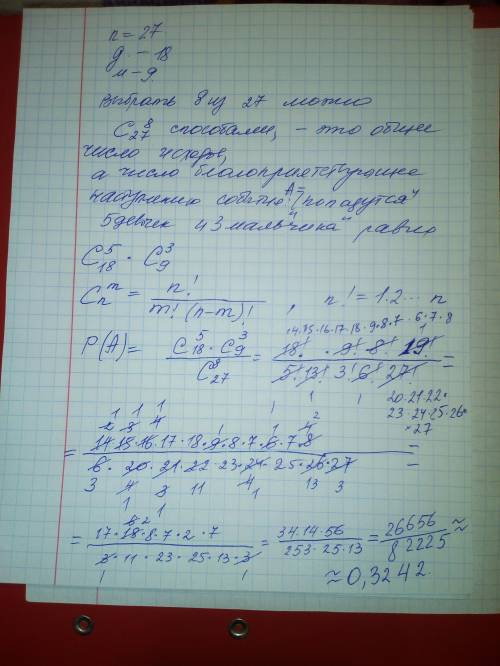 n = 27
д. – 18
м – 9
выбрать 8 из 27 можно
C₂₇⁸ способами, – это общее
число исходов,
а число благоприятствующее
наступлению события A = "попадутся
5 девочек и 3 мальчика" равно
C₁₈⁵ · C₉³
Cₙᵐ = n! / m! (n-m)! , n! = 1·2... n
14·15·16·17·18·9·8·7·6·7·8
P(A) = C₁₈⁵ · C₉³ / C₂₇⁸ = 18! · 9! · 8! · 19! / 5! 13! 3! 6! 27! =
20·21·22·
23·24·25·26·
·27
= 14·15·16·17·18·9·8·7·6·7·8 / 6·20·21·22·23·24·25·26·27 =
= 17·18·8·7·2·7 / 3·11·23·25·13·3 = 34·14·56 / 253·25·13 = 26656 / 82225 ≈
≈ 0,3242.